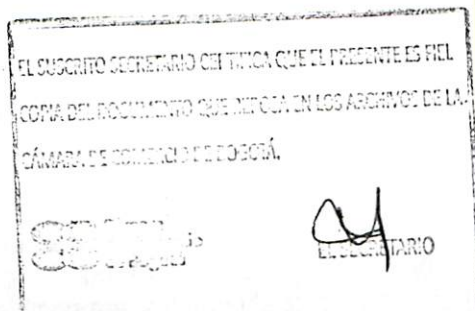 EL SUSCRITO SECRETARIO CERTIFICA QUE EL PRESENTE ES FIEL
COPIA DEL DOCUMENTO QUE REPOSA EN LOS ARCHIVOS DE LA
CÁMARA DE COMERCIO DE BOGOTÁ,
EL SECRETARIO